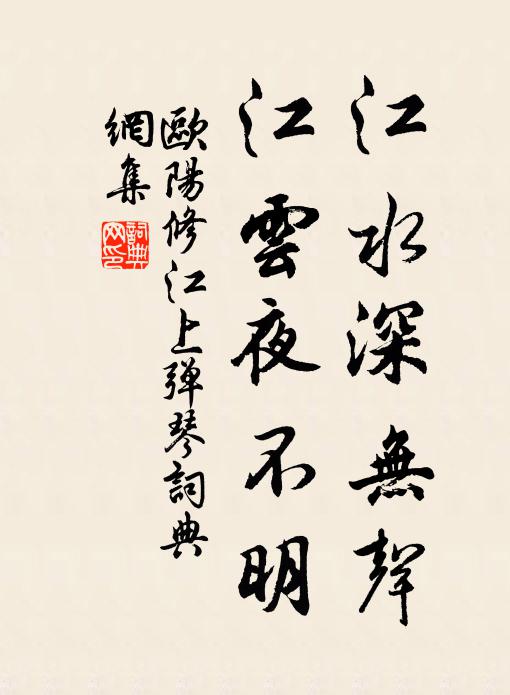 江水深無聲
江雲夜不明
歐陽修江上弹琴詞典
網集
詞典
网印